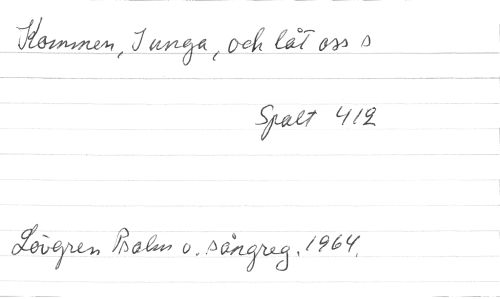 Kommen, I unga, och låt oss s
Spalt 412
Lövgren Psalm o. sångreg. 1964.